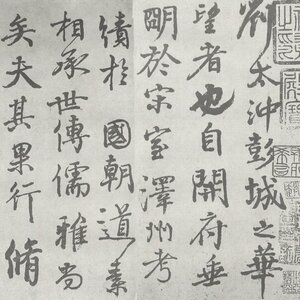 劉太沖彭城之華
望者也自開府垂
明於宋室澤州考
績於國朝道素
相承世傳儒雅尚
矣夫其果行脩